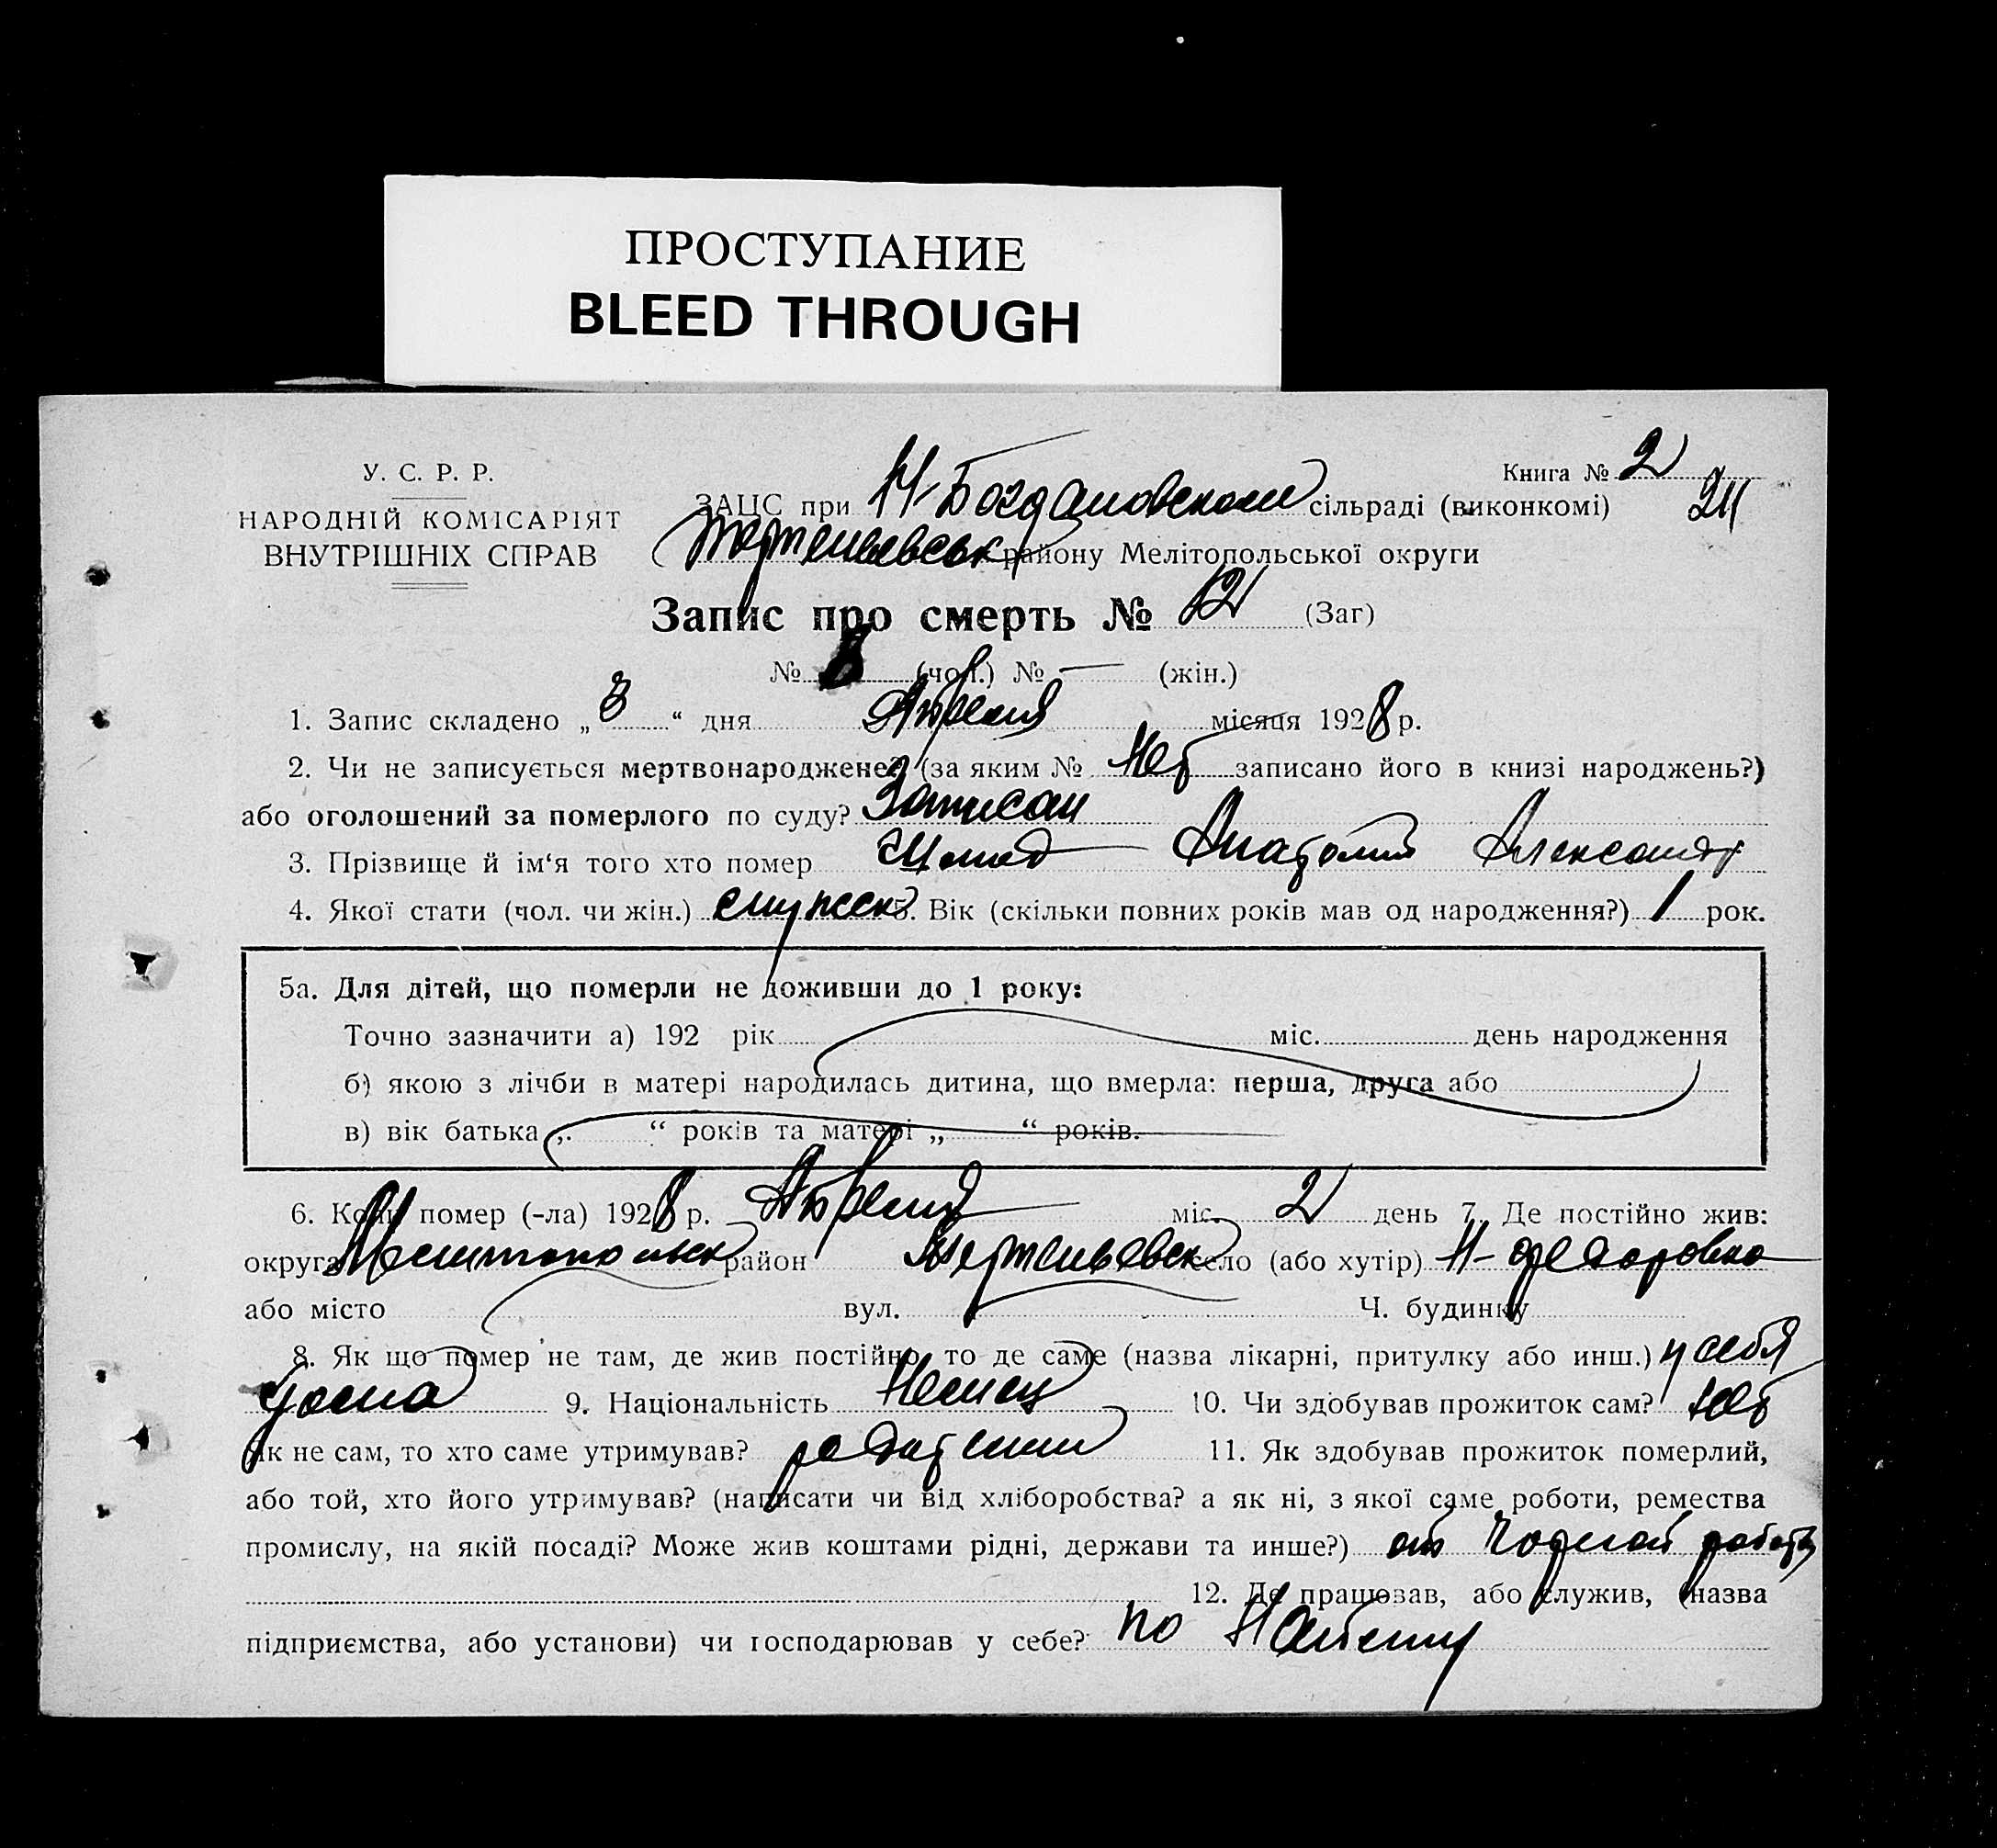 ПРОСТУПАНИЕ
BLEED THROUGH
У. С. Р. Р.
НАРОДНІЙ КОМІСАРІЯТ
ВНУТРІШНІХ СПРАВ
Книга № 2
24
ЗАЦС при Н-Богдановском сільраді (виконкомі)
району Мелітопольської округи
Запис про смерть № 12 (Заг)
№ 8 (чол.) № — (жін.)
1. Запис складено „ 3 “ дня Апреля місяця 1928 р.
2. Чи не записується мертвонароджене? (за яким № Нет записано його в книзі народжень?)
або оголошений за померлого по суду? Записан
3. Прізвище й ім‘я того хто помер Шмид Анатолий Александр
4. Якої стати (чол. чи жін.) мужск 5. Вік (скільки повних років мав од народження?) 1 рок.
5а. Для дітей, що померли не доживши до 1 року:
Точно зазначити а) 192 рік міс. день народження
б) якою з лічби в матері народилась дитина, що вмерла: перша, друга або
в) вік батька „ “ років та матері „ “ років.
6. Коли помер (-ла) 1928 р. Апреля міс. 2 день 7. Де постійно жив:
округа Мелитопольск район Терпеньевск село (або хутір) Н-Федоровка
або місто вул. Ч. будинку
8. Як що помер не там, де жив постійно, то де саме (назва лікарні, притулку або инш.) у себя
дома 9. Національність Немец 10. Чи здобував прожиток сам? нет
Як не сам, то хто саме утримував? родители 11. Як здобував прожиток померлий,
або той, хто його утримував? (написати чи від хліборобства? а як ні, з якої саме роботи, ремества
промислу, на якій посаді? Може жив коштами рідні, держави та инше?) от Чорной работы
12. Де працював, або служив, (назва
підприємства, або установи) чи господарював у себе? по Найому